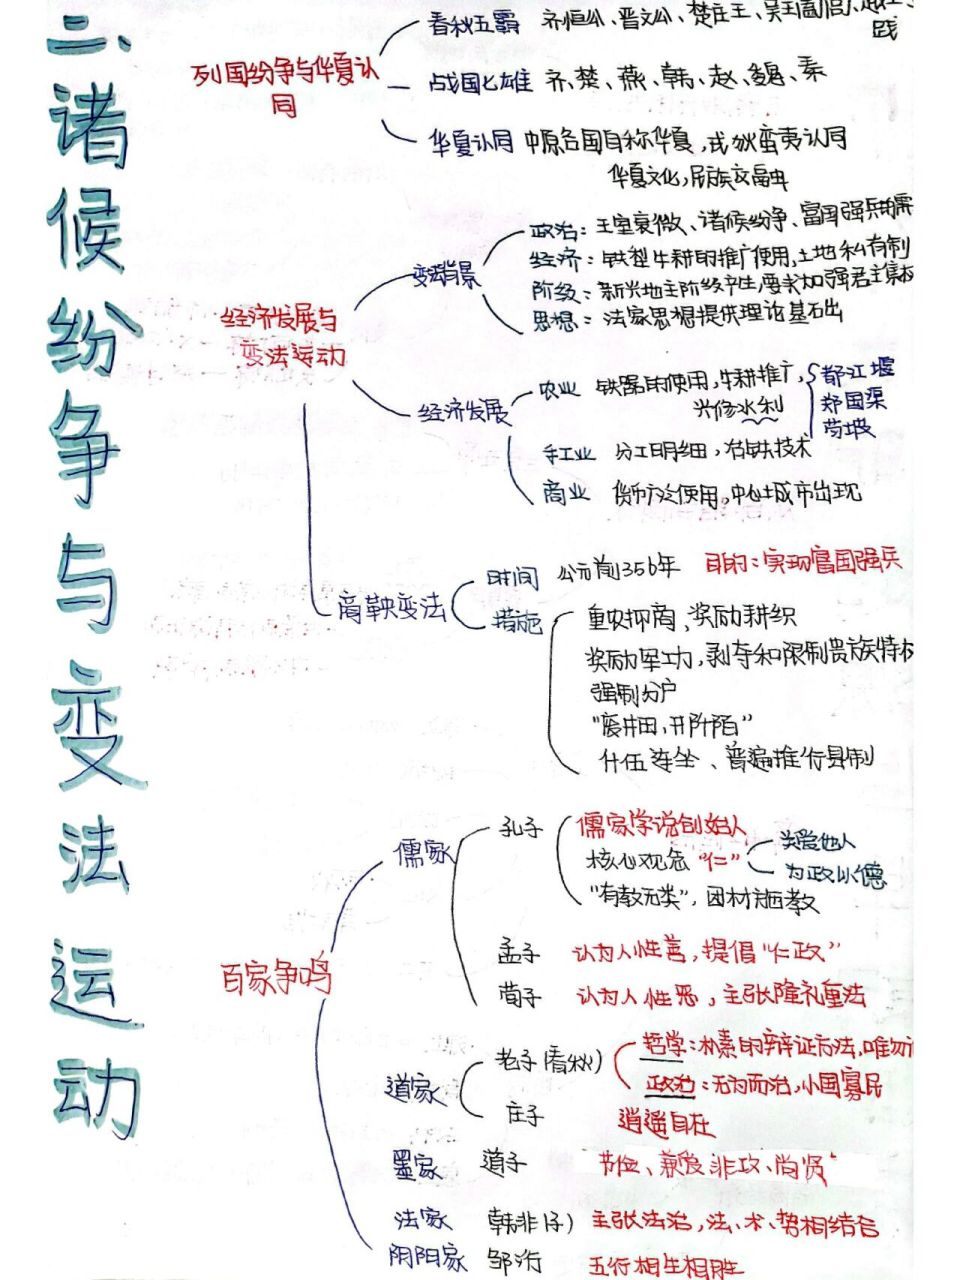 二、诸候纷争与变法运动
列国纷争与华夏认同
春秋五霸 齐恒公、晋文公、楚庄王、吴王阖闾、越王勾践
战国七雄 齐、楚、燕、韩、赵、魏、秦
华夏认同 中原各国自称华夏,戎狄蛮夷认同
华夏文化,民族交融
经济发展与
变法运动
变法背景
政治:王室衰微、诸候纷争、富国强兵的需
经济:铁犁牛耕的推广使用,土地私有制
阶级:新兴地主阶级产生,要求加强君主集权
思想:法家思想提供理论基础
经济发展
农业 铁器的使用,牛耕推广,
兴修水利
都江堰
郑国渠
芍坡
手工业 分工明细,冶铁技术
商业 货币广泛使用,中心城市出现
商鞅变法
时间 公元前356年 目的:实现富国强兵
措施
重农抑商、奖励耕织
奖励军功,剥夺和限制贵族特权
强制分户
"废井田,开阡陌"
什伍连坐、普遍推行县制
百家争鸣
儒家
孔子
儒家学说创始人
核心观念"仁"
关爱他人
为政以德
"有教无类",因材施教
孟子 认为人性善,提倡"仁政"
荀子 认为人性恶,主张隆礼重法
道家
老子(春秋)
哲学:朴素的辩证方法,唯物
政治:无为而治,小国寡民
庄子 逍遥自在
墨家 道子 节俭、兼爱非攻、尚贤
法家 韩非(子) 主张法治,法、术、势相结合
阴阳家 邹衍 五行相生相胜